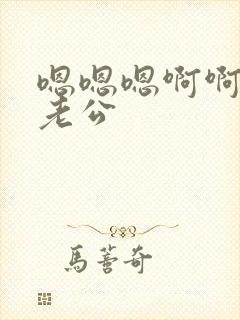 嗯嗯嗯啊啊
老公
馬蓍奇